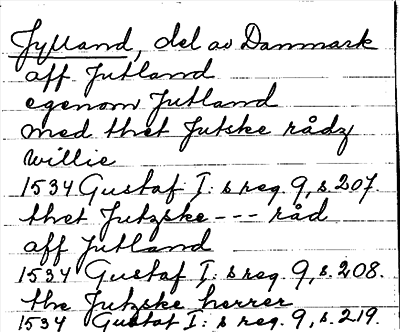 Jylland, del av Danmark
aff Jutland
egenom Jutland
med thet Jutske rådz
willie
1534 Gustaf I: s reg. 9, s. 207.
thet Jutzske --- råd
aff Jutland
1534 Gustaf I: s reg. 9, s. 208.
the Jutzske herrer
1534 Gustaf I: s reg. 9, s. 219.